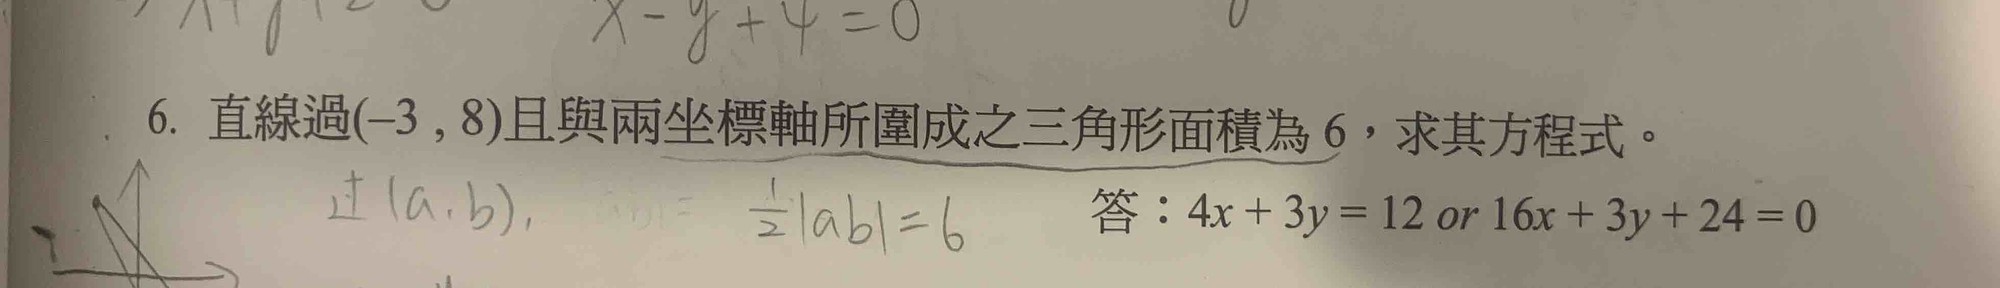 x-y+4=0
6. 直線過(–3 , 8)且與兩坐標軸所圍成之三角形面積為 6，求其方程式。
过(a,b), ½|ab|=6
答：4x + 3y = 12 or 16x + 3y + 24 = 0